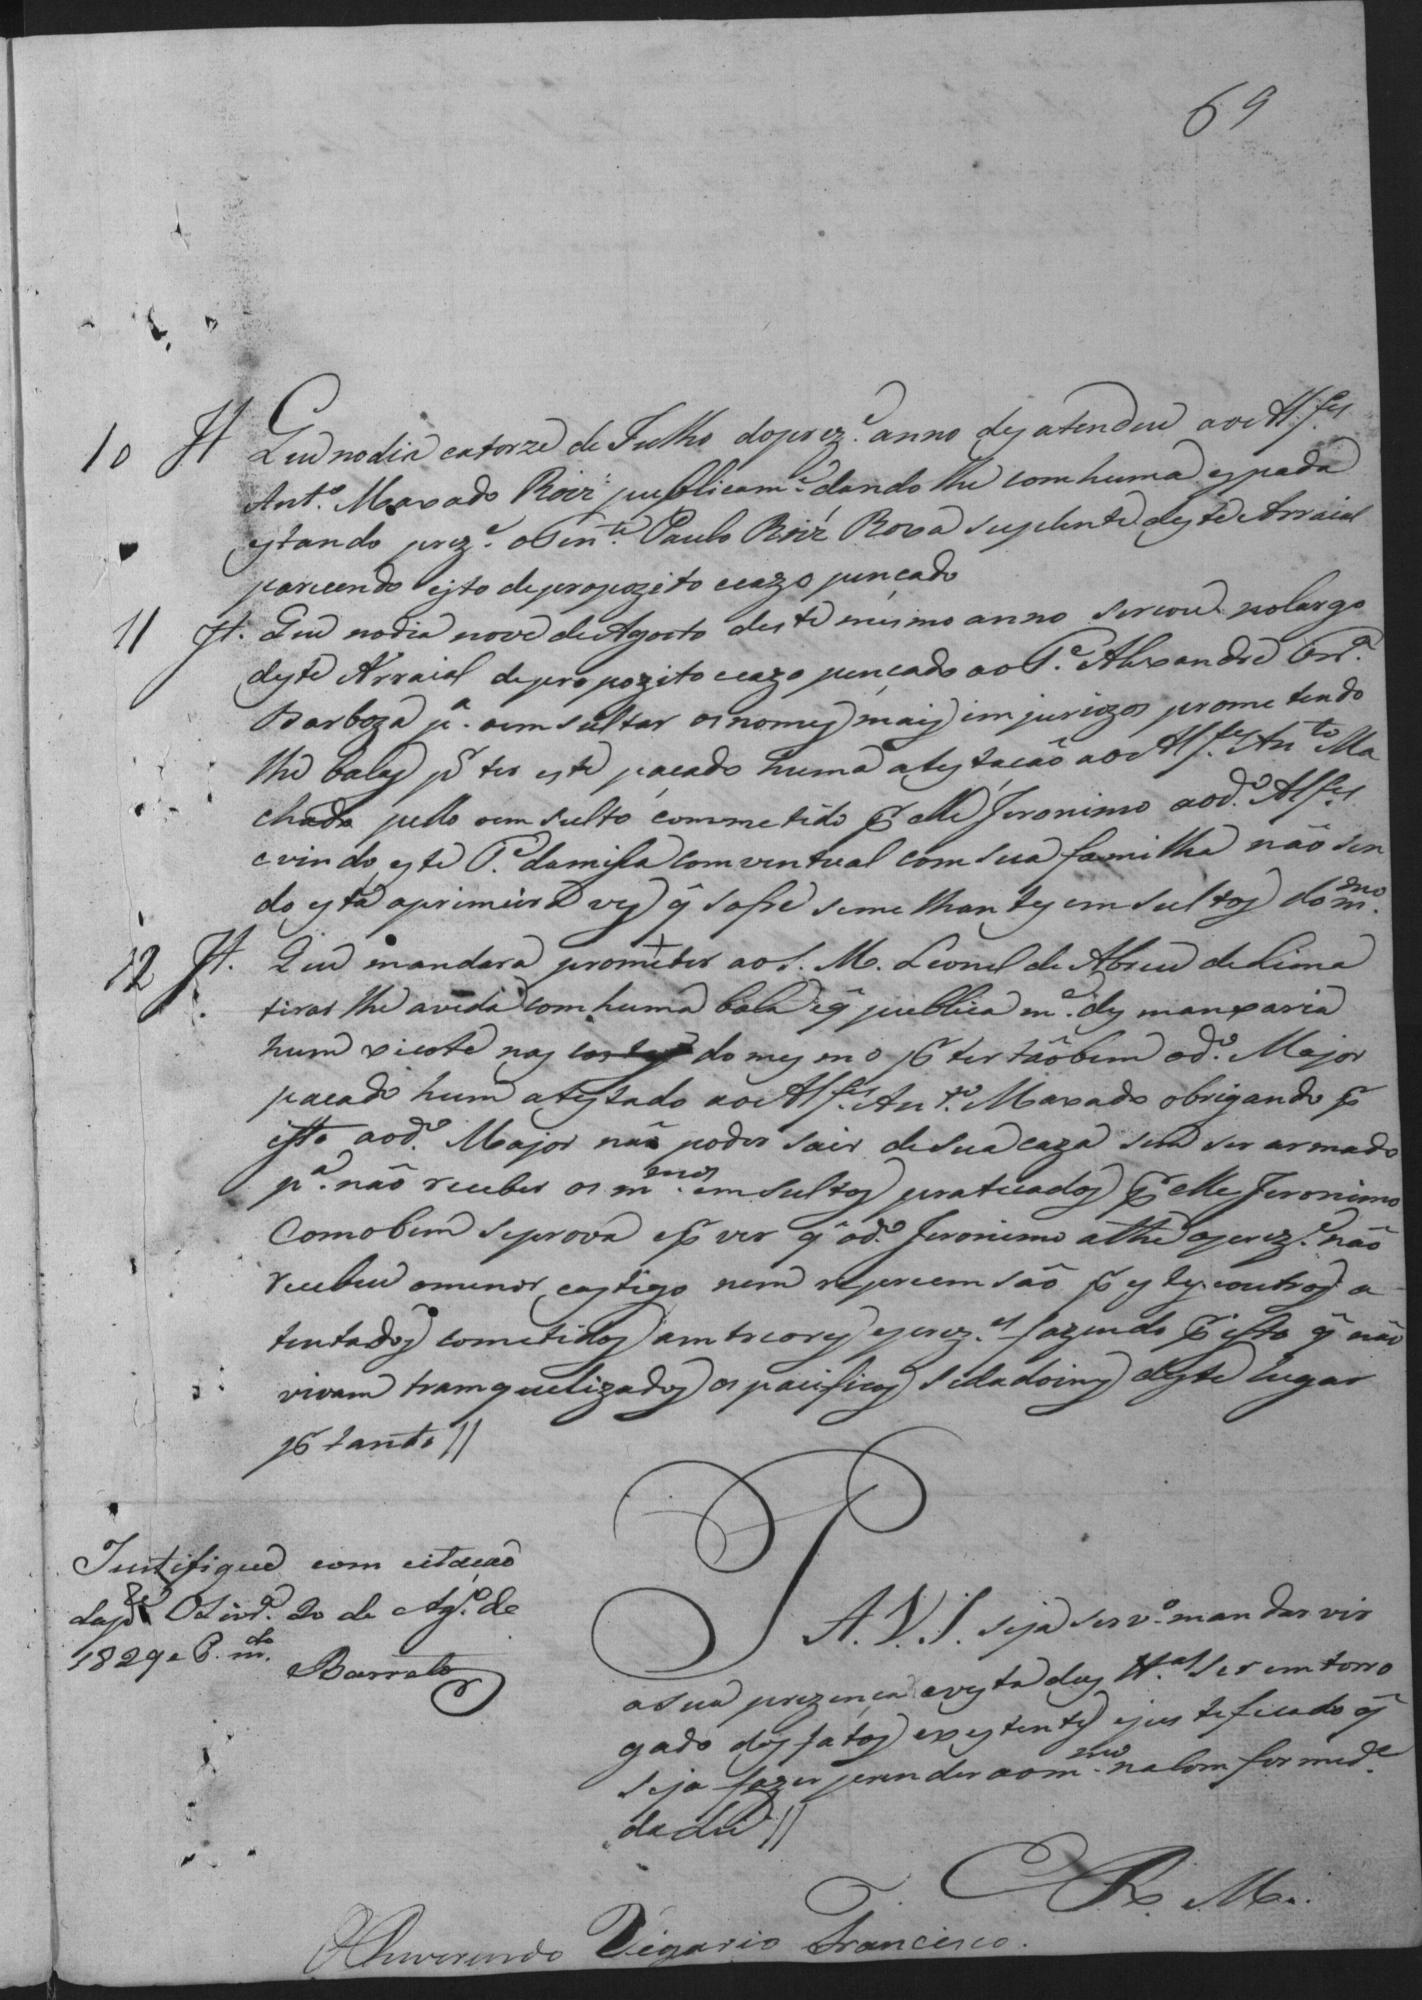 69
10 It. Que no dia catorze de Julho do prez.e anno desatendeu ao Alf.es
Ant.o Maxado Roiz' publicam.e dando lhe com huma espada
estando prez.e o Ten.te Paulo Roiz' Roxa suplente deste Arraial
parecendo isto de propozito e cazo pençado
11 It. Que no dia nove de Agosto deste mesmo anno sercou no largo
deste Arraial de propozito e cazo pençado ao P.e Alexandre Ferr.a
Barboza p.a o emsultar os nomes mais imjuriozos prometendo
lhe balas p.r ter este paçado huma atestacaõ ao Alf.es An.to Ma
chado pello emsulto commetido p.r elle Jeronimo ao d.o Alf.es
e vindo este P.e da misa comventual com sua familha naõ sen
do esta a primeira ves q̃ sofre semelhantes emsultos do m.mo
12 It. Que mandara prometer ao S. M. Leonel de Abreu de Lima
tirar lhe a vida com huma bala e q̃ publica m.e desmanxaria
hum xicote nas costas do mesmo p.r ter taõbem o d.o Major
paçado hum atestado ao Alf.es An.to Maxado obrigando p.r
isto ao d.o Major naõ poder sair de sua caza sem ser armado
p.a naõ receber os m.mos emsultos praticados p.r elle Jeronimo
Como bem se prova e p.r ver q̃ o d.o Jeronimo athe o prez.e naõ
recebeu o menor castigo nem repreemsaõ p.r estes e outros a
tentados cometidos amtreores e prez.es fazendo p.r isto q̃ naõ
vivam tramquelizados os pacificos sidadoins deste lugar
p.r tanto //
Justifique com citaçaõ
da p.te Oliv.ra 20 de Ag.to de
1829 e P. m.do
Barreto
P. A. V. S. seja serv.o mandar vir
a sua prezença a vista das tt.as ser emtorro
gado dos fatos existentes e justeficado q̃
seja fazer prender ao m.mo na comformed.e
da Lei //
E. R. M.
O Reverendo Vigario Francisco.